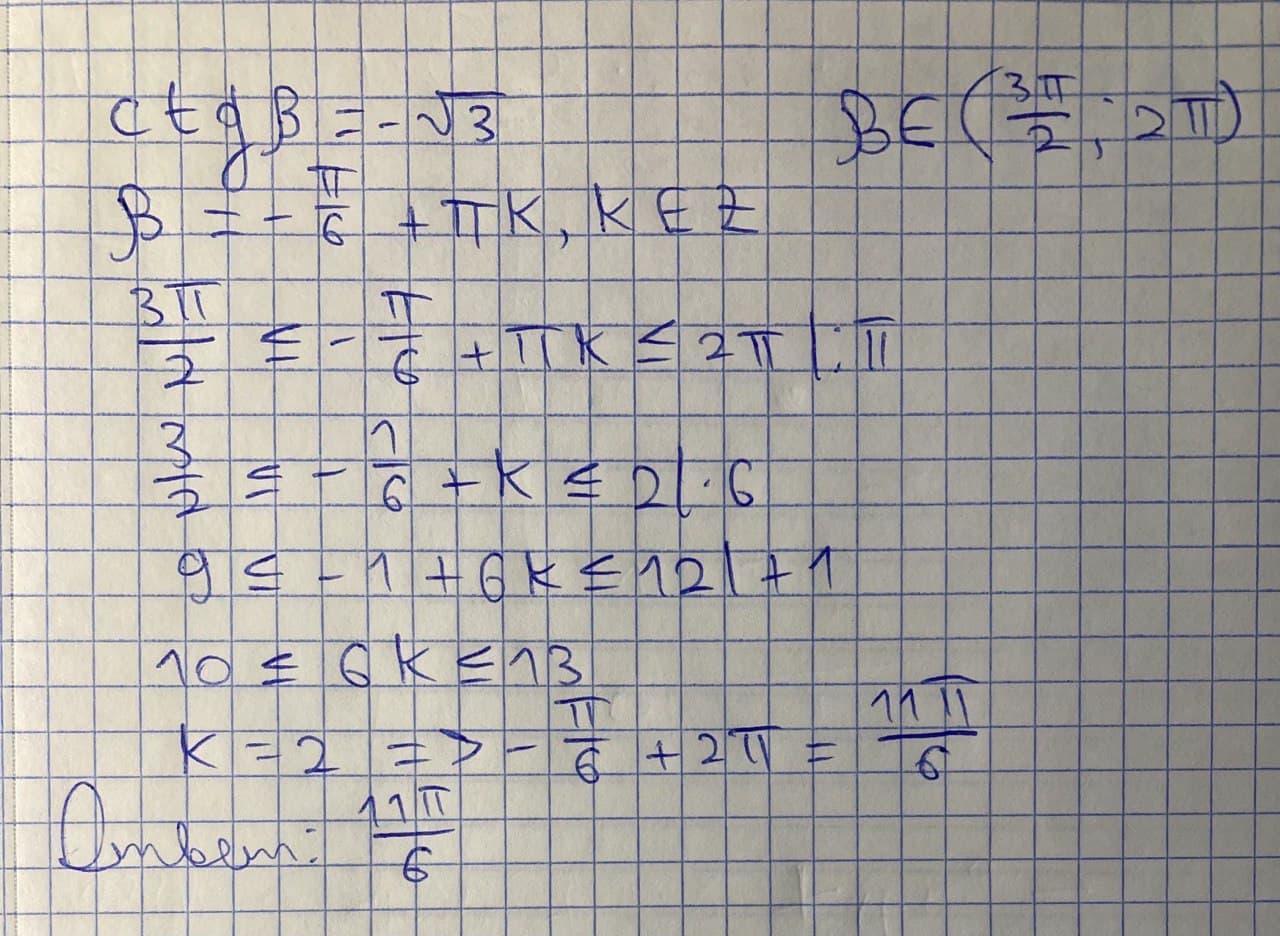 ctg β = -√3 β∈(3π/2; 2π)
β = -π/6 + πk, k∈Z
3π/2 ≤ -π/6 + πk ≤ 2π |:π
3/2 ≤ -1/6 + k ≤ 2|·6
9 ≤ -1 + 6k ≤ 12|+1
10 ≤ 6k ≤ 13
k = 2 => -π/6 + 2π = 11π/6
Ответ: 11π/6